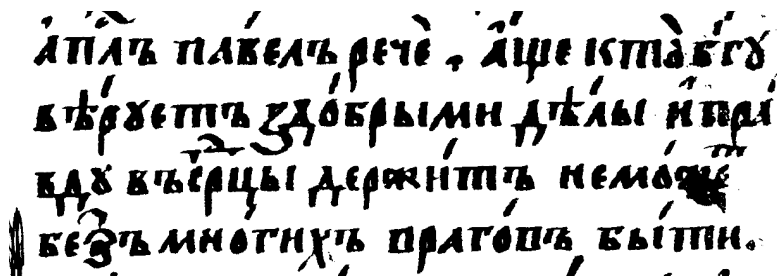 а҆плъ павелъ рече̏ . а҆́ще кто̀ бг҃у
вѣ́руетъ здо́брыми дѣ́лы и҆пра́
вду въсе́рцы держи́тъ немо́жетъ
безъмно́гихъ враго́въ бы́ти.